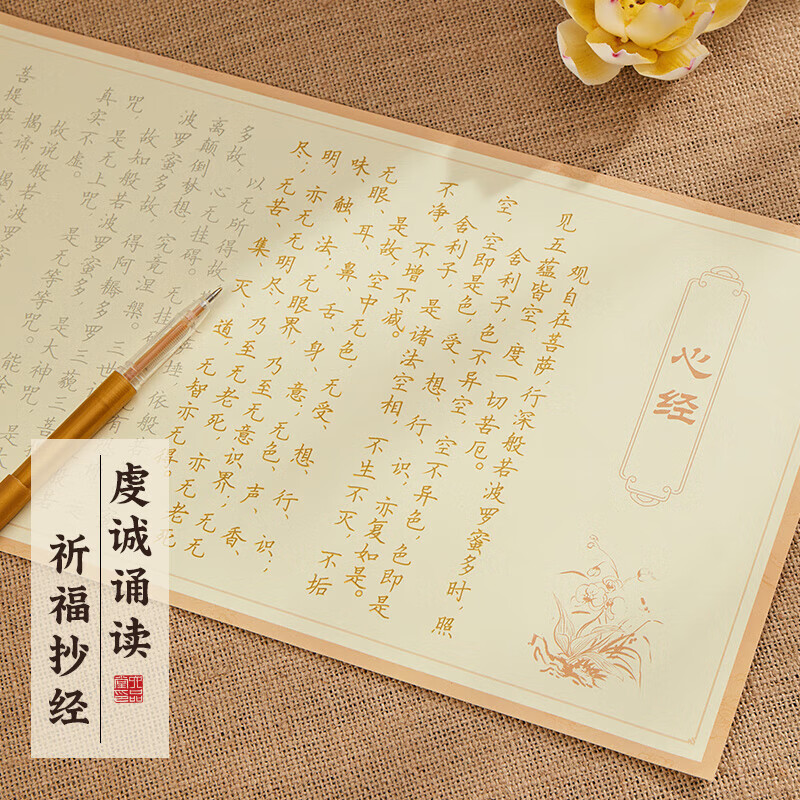 心经
观自在菩萨,行深般若波罗蜜多时,照
见五蕴皆空,度一切苦厄。
舍利子,色不异空,空不异色,色即是
空,空即是色,受、想、行、识,亦复如是。
舍利子,是诸法空相,不生不灭,不垢
不净,不增不减。
是故空中无色,无受、想、行、识;
无眼、耳、鼻、舌、身、意;无色、声、香、
味、触、法,无眼界,乃至无意识界;无
明,亦无无明尽,乃至无老死,亦无老死
尽,无苦、集、灭、道,无智亦无得。
以无所得故
多故,心无挂碍。无挂
离颠倒梦想,究竟涅槃。三世
波罗蜜多故,得阿耨多罗三藐三菩
故知般若波罗蜜多是大神咒,
咒,是无等等咒。能除
真实不虚。
故说般若波罗蜜
揭谛,揭
菩提萨
虔诚诵读
祈福抄经